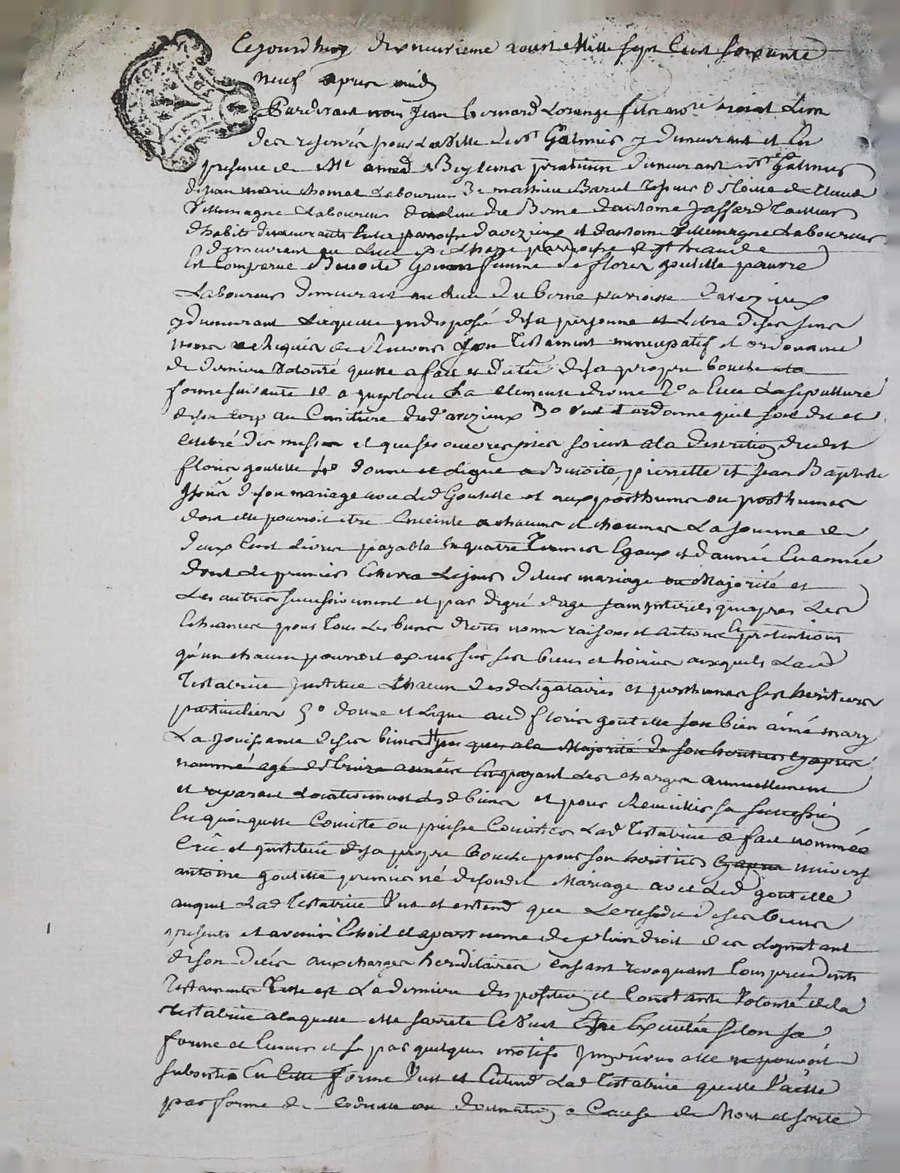 Cejourdhuy dixneuvieme aoust mille sept cent soixante
neuf apres midy
Pardevant nous Jean Bernard Lorange fils no.re roial Lun
des reservés pour la ville de st Galmier y demeurant et En
presence de Me amed praticien demeurant aud st Galmier
de jean marie thomas Laboureur Mathieu Barel
Villemagne Laboureur du lieu du Berne dantoine Jaffard Tailleur
d'habits demeurants paroisse d'avezieux et dantoine Villemagne Laboureur
demeurant au Lieu de paroisse de
Est Comparue Benoite femme de fleury goutelle pauvre
Laboureur demeurant au Lieu du berne parroisse d'avezieux
y demeurant Laquelle indisposé de sa personne et Libre de ses sens
nous a Requis de Recevoir son Testament nuncupatif et ordonnance
de derniere Volonté quelle a fait et dicté de sa propre bouche
forme suivante 1o a imploré La clemence divine 2o a Elu La sepulture
de son corp au Cimitiere dud avezieux 3o veut et ordonne quil soit dit et
celebré des messes et que ses oeuvres pies soient a la discretion dudit
fleury goutelle 4o donne et Legue a Benoite, pierrette et Jean Baptiste
de son mariage avec Led Goutelle et aux posthume ou posthumes
dont elle pourroit etre Enceinte a chacuns et chacunes La somme de
deux Cent Livres payable En quatre Termes Egaux et d'année En année
dont Le premier Echerra Le jour de leur mariage ou Majorité et
Les autres successivement et par degré d'age sans interets qu'apres Les
Echeances pour Tous Les biens droits noms raisons et actions et pretentions
qu'un chacun pourroit avoir sur ses biens et hoirie auxquels Lad
Testatrice institue Chacun desd Legataires et posthumes ses heritiers
particuliers 5o donne et Legue aud fleury goutelle son bien aimé mary
La Jouissance de ses biens jusques a la Majorité de son heritier cy apres
nommé agé de treize années En payant Les charges annuellement
et reparant Locativement Lesd biens et pour Recueillir sa succession
En quoy quelle Consiste ou puisse Consister Lad Testatrice a fait nommée
Crée et institué de sa propre bouche pour son heritier univers
antoine goutelle premier né de sond Mariage avec Led goutelle
auquel Lad Testatrice Veut et entend que Le residu de ses biens
presents et avenir Echoit et apartienne de plein droit Des Linstant
de son déces aux charges hereditaires cassant revoquant Tous precedents
Testaments Telle est La derniere disposition et Constante Volonté de la
Testatrice a laquelle elle sarrete Et Veut Etre Executée selon sa
forme et teneur et si par quelques motifs imprévus elle ne pouvoit
subsister En Cette forme Veut et Entend Lad Testatrice quelle Vaille
par forme de codicille ou donnation a Cause de Mort et soute